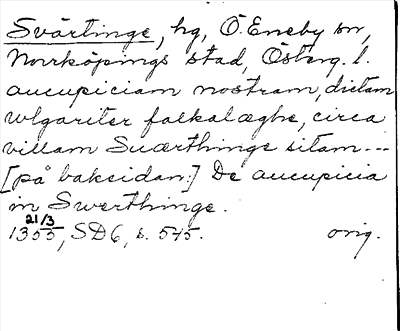 Svärtinge, hg, Ö. Eneby sn,
Norrköpings stad, Österg. l.
aucupiciam nostram, dictam
wlgariter falkalæghe, circa
villam Suærthinge sitam ---
[på baksidan:] De aucupicia
in Swerthinge.
21/3
1355, SD6, s. 545. orig.